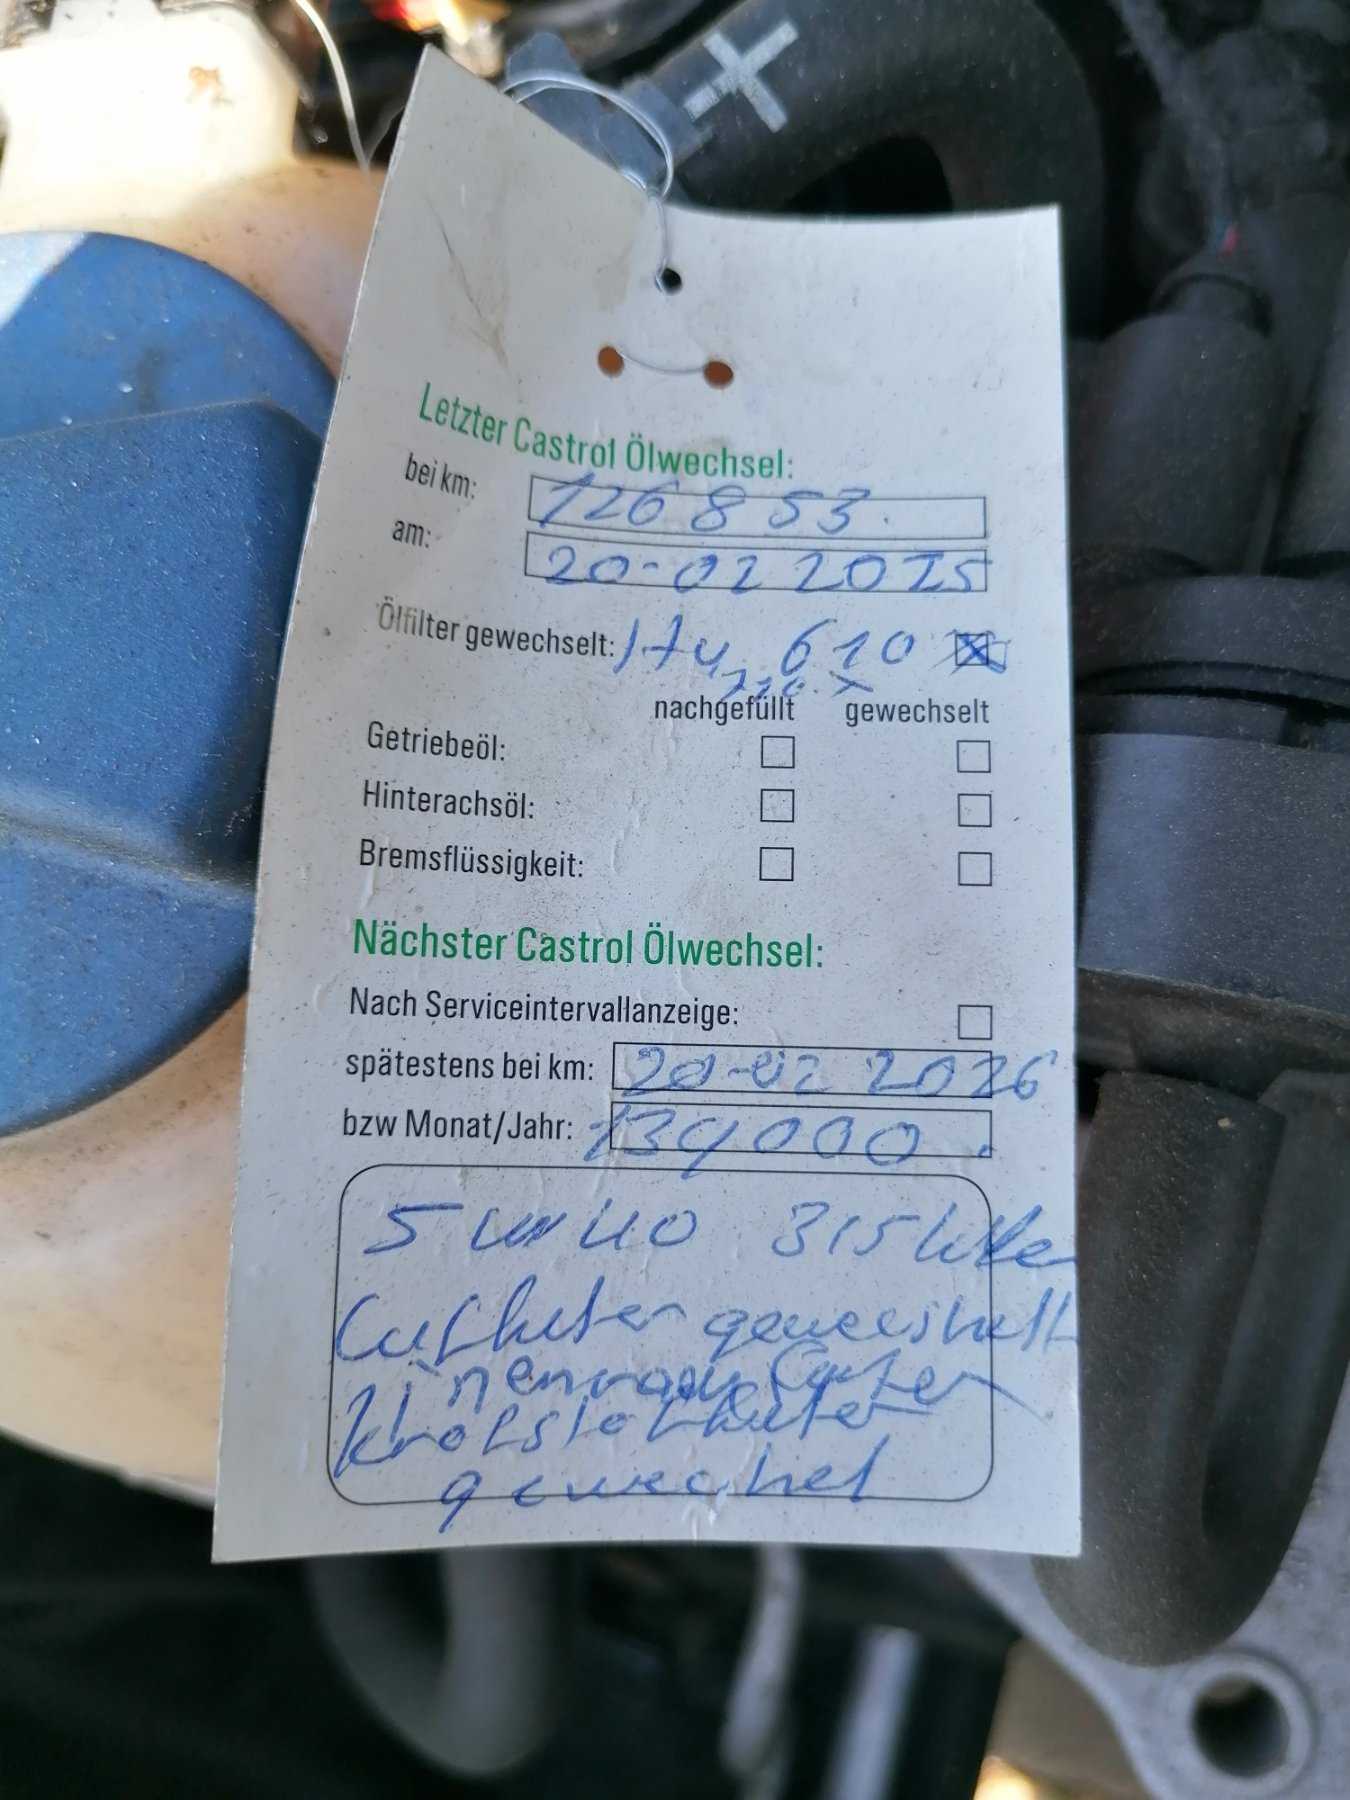 Letzter Castrol Ölwechsel:
bei km: 126 853.
am: 20-02 2025
Ölfilter gewechselt: 174 610
nachgefüllt gewechselt
Getriebeöl:
Hinterachsöl:
Bremsflüssigkeit:
Nächster Castrol Ölwechsel:
Nach Serviceintervallanzeige:
spätestens bei km: 20-02 2026
bzw Monat/Jahr: 139000.
5 W 40 3,5
gewechselt